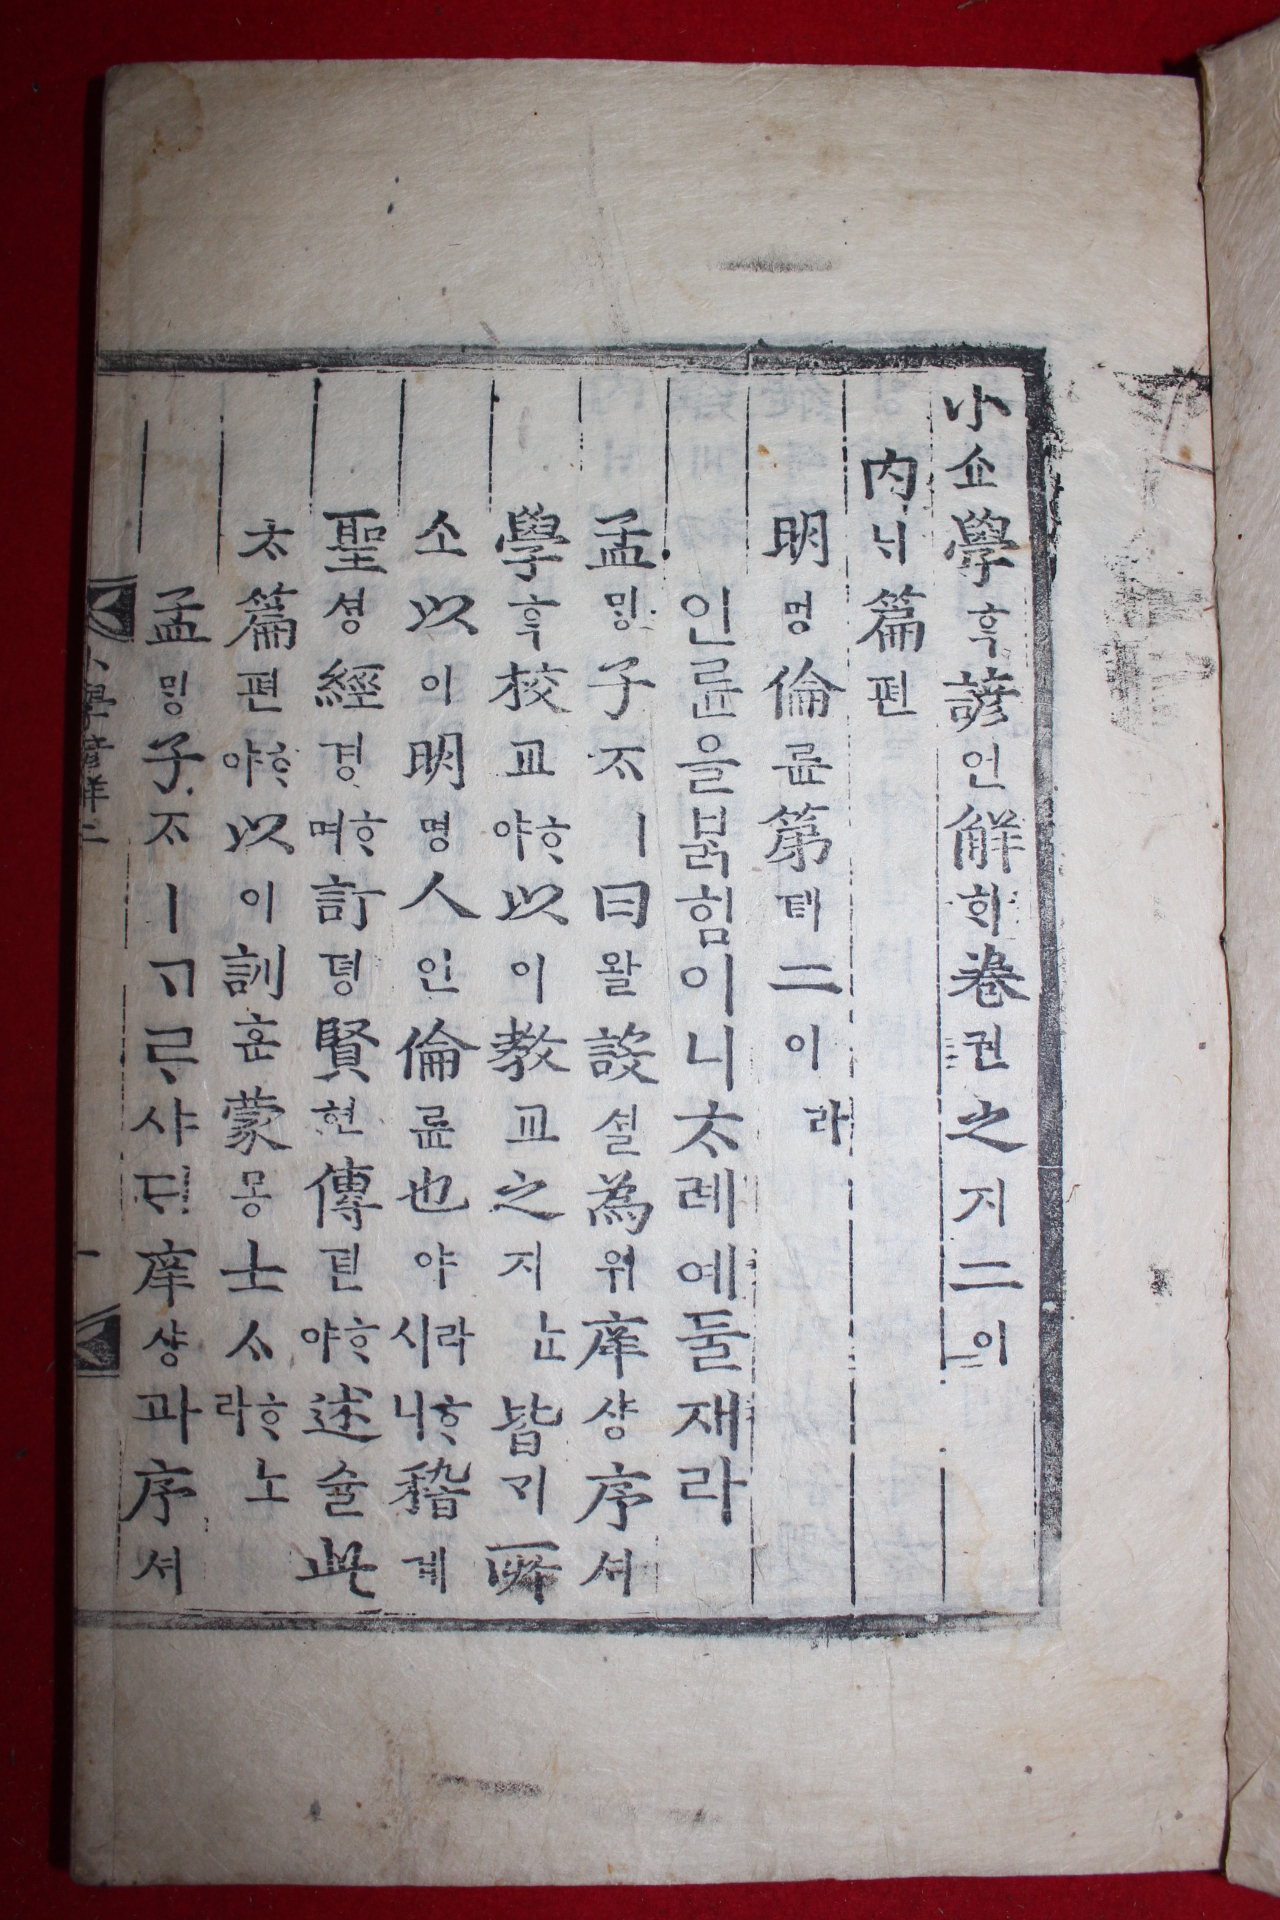 小쇼學ᄒᆞᆨ諺언解ᄒᆡ卷권之지二이
內ᄂᆡ篇편
明명倫륜第뎨二이라
인륜을ᄇᆞᆰ힘이니ᄎᆞ례예둘재라
孟ᄆᆡᆼ子ᄌᆞㅣ曰왈設셜爲위庠샹序셔
學ᄒᆞᆨ校교ᄒᆞ야以이敎교之지ᄂᆞᆫ皆ᄀᆡ所
소以이明명人인倫륜也야ㅣ라ᄒᆞ시니稽계
聖셩經경ᄒᆞ며訂뎡賢현傳뎐ᄒᆞ야述슐此
ᄎᆞ篇편ᄒᆞ야以이訓훈蒙몽士ᄉᆞᄒᆞ노라
孟ᄆᆡᆼ子ᄌᆞㅣᄀᆞᄅᆞ샤ᄃᆡ庠샹과序셔
小學諺解二 一